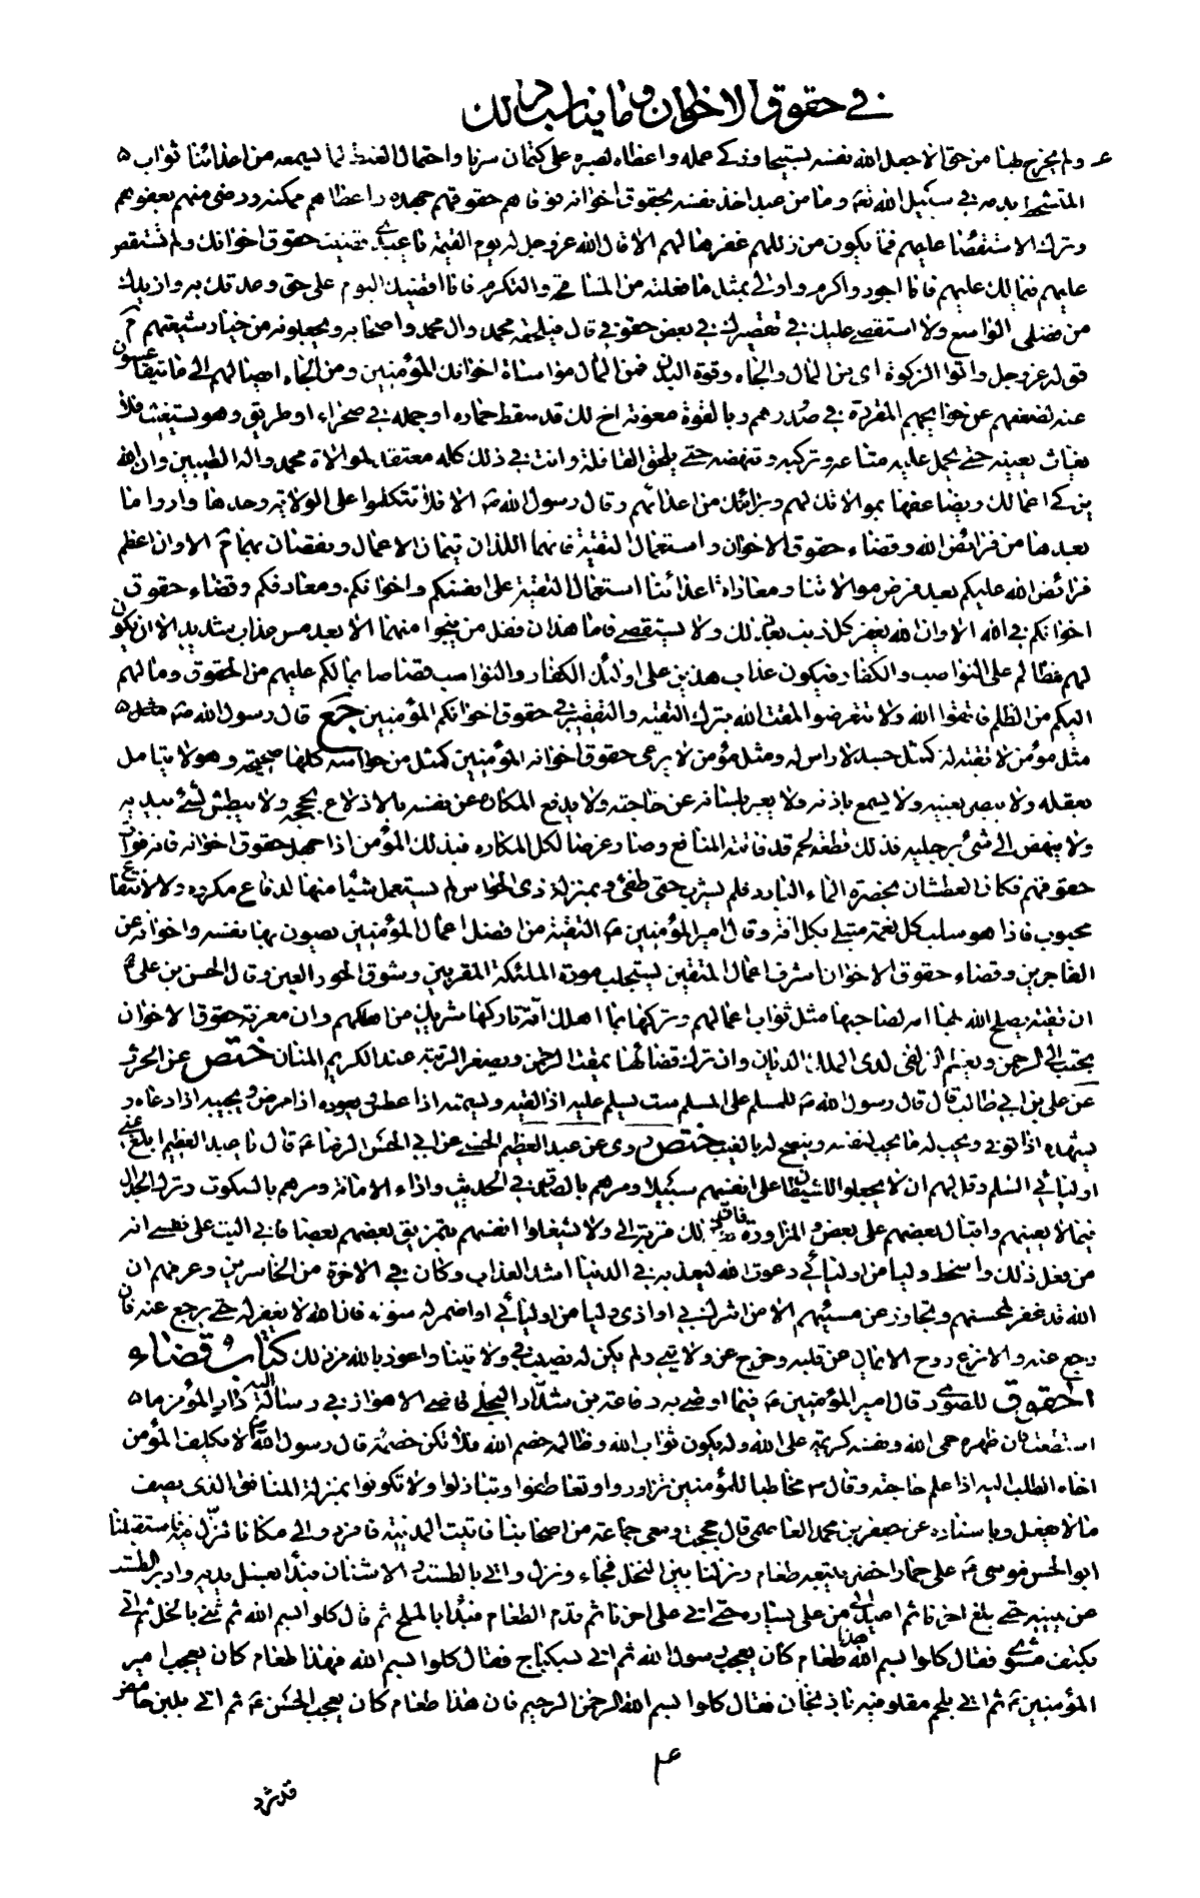 في حقوق الاخوان وما يناسب ذلك
ولم يخرج طبنا من حق الا جعل الله نفسه تسبيحا وزكى عمله واعطاه لصبره على كتمان سرنا واحتمال الغيظ لما يسمعه من اعدائنا ثواب
المتشحط بدمه في سبيل الله ثم وما من عبد اخذ نفسه بحقوق اخوانه فوفاهم حقوقهم جهده واعطاهم ممكنه ورضي منهم بعفوهم
وترك الاستقصاء عليهم فيما يكون من زللهم غفرها لهم الا قال الله عز وجل له يوم القيمة يا عبدي قضيت حقوق اخوانك ولم تستقص
عليهم فيما لك عليهم فانا اجود واكرم واولى بمثل ما فعلته من المسامحة والتكرم فانا اقضيك اليوم على حق وعدتك به وازيدك
من فضلي الواسع ولا استقصي عليك في تقصيرك في بعض حقوقي قال فيلحقه محمد وال محمد واصحابه ويجعلونه من خيار شيعتهم
قوله عز وجل واتوا الزكوة اي من المال والجاه وقوة البدن فمن المال مواساة اخوانك المؤمنين ومن الجاه ايصالهم الى ما يتقاعسون
عنه لضعفهم عن حوائجهم المقررة في صدورهم وبالقوة معونة اخ لك قد سقط حماره او جمله في صحراء او طريق وهو يستغيث فلا
يغاث يعينه حتى يحمل عليه متاعه وتركبه وتنهضه حتى يلحق القافلة وانت في ذلك كله معتقد لموالاة محمد واله الطيبين وان الله
يزكي اعمالك ويضاعفها بموالاتك لهم وبرائتك من اعدائهم وقال رسول الله الا فلا تتكلوا على الولاية وحدها وادوا ما
بعدها من فرائض الله وقضاء حقوق الاخوان واستعمال التقية فانهما اللذان يتمان الاعمال ويقصران بهما الا وان اعظم
فرائض الله عليكم بعد فرض موالاتنا ومعاداة اعدائنا استعمال التقية على انفسكم واخوانكم ومعارفكم وقضاء حقوق
اخوانكم في الله الا وان الله يغفر كل ذنب بعد ذلك ولا يستقصي فاما هذان فقل من ينجوا منهما الا بعد مس عذاب شديد الا ان يكون
لهم مظالم على النواصب والكفار فيكون عذاب هذين على اولئك الكفار والنواصب قصاصا بما لكم عليهم من الحقوق وما لهم
اليكم من الظلم فاتقوا الله ولا تتعرضوا لمقت الله بترك التقية والتقصير في حقوق اخوانكم المؤمنين جمع قال رسول الله
مثل مؤمن لا تقية له كمثل جسد لا راس له ومثل مؤمن لا يرعى حقوق اخوانه المؤمنين كمثل من حواسه كلها صحيحة وهو لا يتامل
بعقله ولا يبصر بعينه ولا يسمع باذنه ولا يعبر بلسانه عن حاجته ولا يدفع المكاره عن نفسه بالادلاء بحججه ولا يبطش لشئ بيديه
ولا ينهض الى شئ برجليه فذلك قطعة لحم قد فاتته المنافع وصار عرضا لكل المكاره فبذلك المؤمن اذا جهل حقوق اخوانه فانه فوات
حقوقهم فكان العطشان بحضرة الماء البارد فلم يشرب حتى طفئ وبمنزلة ذي الحواس لم يستعمل شيئا منها لدفاع مكروه ولا لانتفاع
محبوب فاذا هو سلب كل نعمة مبتلى بكل افة وقال امير المؤمنين التقية من افضل اعمال المؤمنين يصون بها نفسه واخوانه عن
الفاجرين وقضاء حقوق الاخوان اشرف اعمال المتقين يستجلب مودة الملئكة المقربين وشوق الحور العين وقال الحسن بن علي
ان تقية يصلح الله بها امة لصاحبها مثل ثواب اعمالهم وتركها بما اهلك امة تاركها شريك من اهلكهم وان معرفة حقوق الاخوان
يحبب الى الرحمن ويعظم الزلفى لدى الملك الديان وان ترك قضائها يمقت الرحمن ويصغر الرتبة عند الكريم المنان ختص عن الحرث
عن علي بن ابي طالب قال قال رسول الله للمسلم على المسلم ست يسلم عليه اذا لقيه ويسمته اذا عطس ويعوده اذا مرض ويجيبه اذا دعاه و
يشهده اذا توفي ويحب له ما يحب لنفسه وينصح له بالغيب ختص روى عن عبد العظيم الحسني عن ابي الحسن الرضا قال يا عبد العظيم ابلغ عني
اوليائي السلم وقل لهم ان لا يجعلوا للشيطان على انفسهم سبيلا ومرهم بالصدق في الحديث واداء الامانة ومرهم بالسكوت وترك الجدال
فيما لا يعنيهم واقبال بعضهم على بعض والمزاورة فان ذلك قربة الي ولا يشغلوا انفسهم بتمزيق بعضهم بعضا فاني اليت على نفسي انه
من فعل ذلك واسخط وليا من اوليائي دعوت الله ليعذبه في الدنيا اشد العذاب وكان في الاخرة من الخاسرين وعرفهم ان
الله قد غفر لمحسنهم وتجاوز عن مسيئهم الا من اشرك بي او اذى وليا من اوليائي او اضمر له سوء فان الله لا يغفر له حتى يرجع عنه فان
رجع عنه والا نزع روح الايمان عن قلبه وخرج عن ولايتي ولم يكن له نصيب في ولايتنا واعوذ بالله من ذلك كتاب قضاء
الحقوق للصوري قال امير المؤمنين فيما اوصى به رفاعة بن شداد البجلي قاضي الاهواز في رسالة اليه دار المؤمن ما
استطعت فان ظهره حمى الله ونفسه كريمة على الله وله يكون ثواب الله وظالمه خصم الله فلا تكن خصمه قال رسول الله لا يكلف المؤمن
اخاه الطلب اليه اذا علم حاجته وقال مخاطبا للمؤمنين تزاوروا وتعاطفوا وتباذلوا ولا تكونوا بمنزلة المنافق الذي يصف
ما لا يفعل وباسناده عن جعفر بن محمد العاصمي قال حججت ومعي جماعة من اصحابنا فاتيت المدينة فافردوا لي مكانا ننزل فيه فاستقبلنا
ابو الحسن موسى على حمار اخضر يتبعه طعام ونزلنا بين النخل فجاء ونزل واتي بالطشت والاشنان فبدأ بغسل يديه وادير الطشت
عن يمينه حتى بلغ اخرنا ثم اعيد الى من على يساره حتى اتي على اخرنا ثم قدم الطعام فبدأ بالملح ثم قال كلوا بسم الله ثم ثنى بالخل ثم اتي
بكتف مشوي فقال كلوا بسم الله هذا طعام كان يعجب رسول الله ثم اتي بسكباج فقال كلوا بسم الله فهذا طعام كان يعجب امير
المؤمنين ثم اتي بلحم مقلو فيه باذنجان فقال كلوا بسم الله الرحمن الرحيم فان هذا طعام كان يعجب الحسن ثم اتي بلبن حامض
قد ثرد